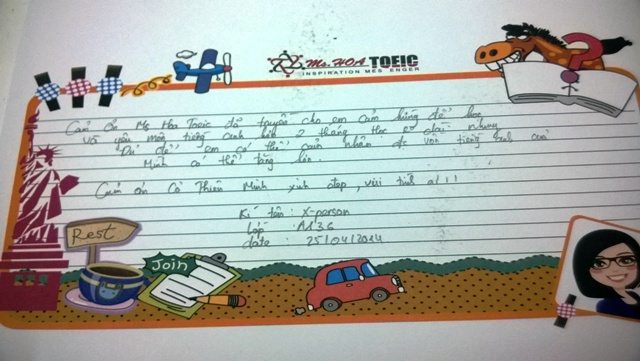 Ms. HOA TOEIC
INSPIRATION MESSENGER
Cảm ơn Ms Hoa Toeic đã truyền cho em cảm hứng để học
và yêu môn tiếng anh hơn 2 tháng học k dài nhưng
Đủ để em có thể cảm nhận đc vốn tiếng anh của
Mình có thể tăng lên.
Cảm ơn Cô Thiên Minh xinh đẹp, vui tính ạ!!
Kí tên : X-person
Lớp : A136
date : 25/04/2014
Rest
Join